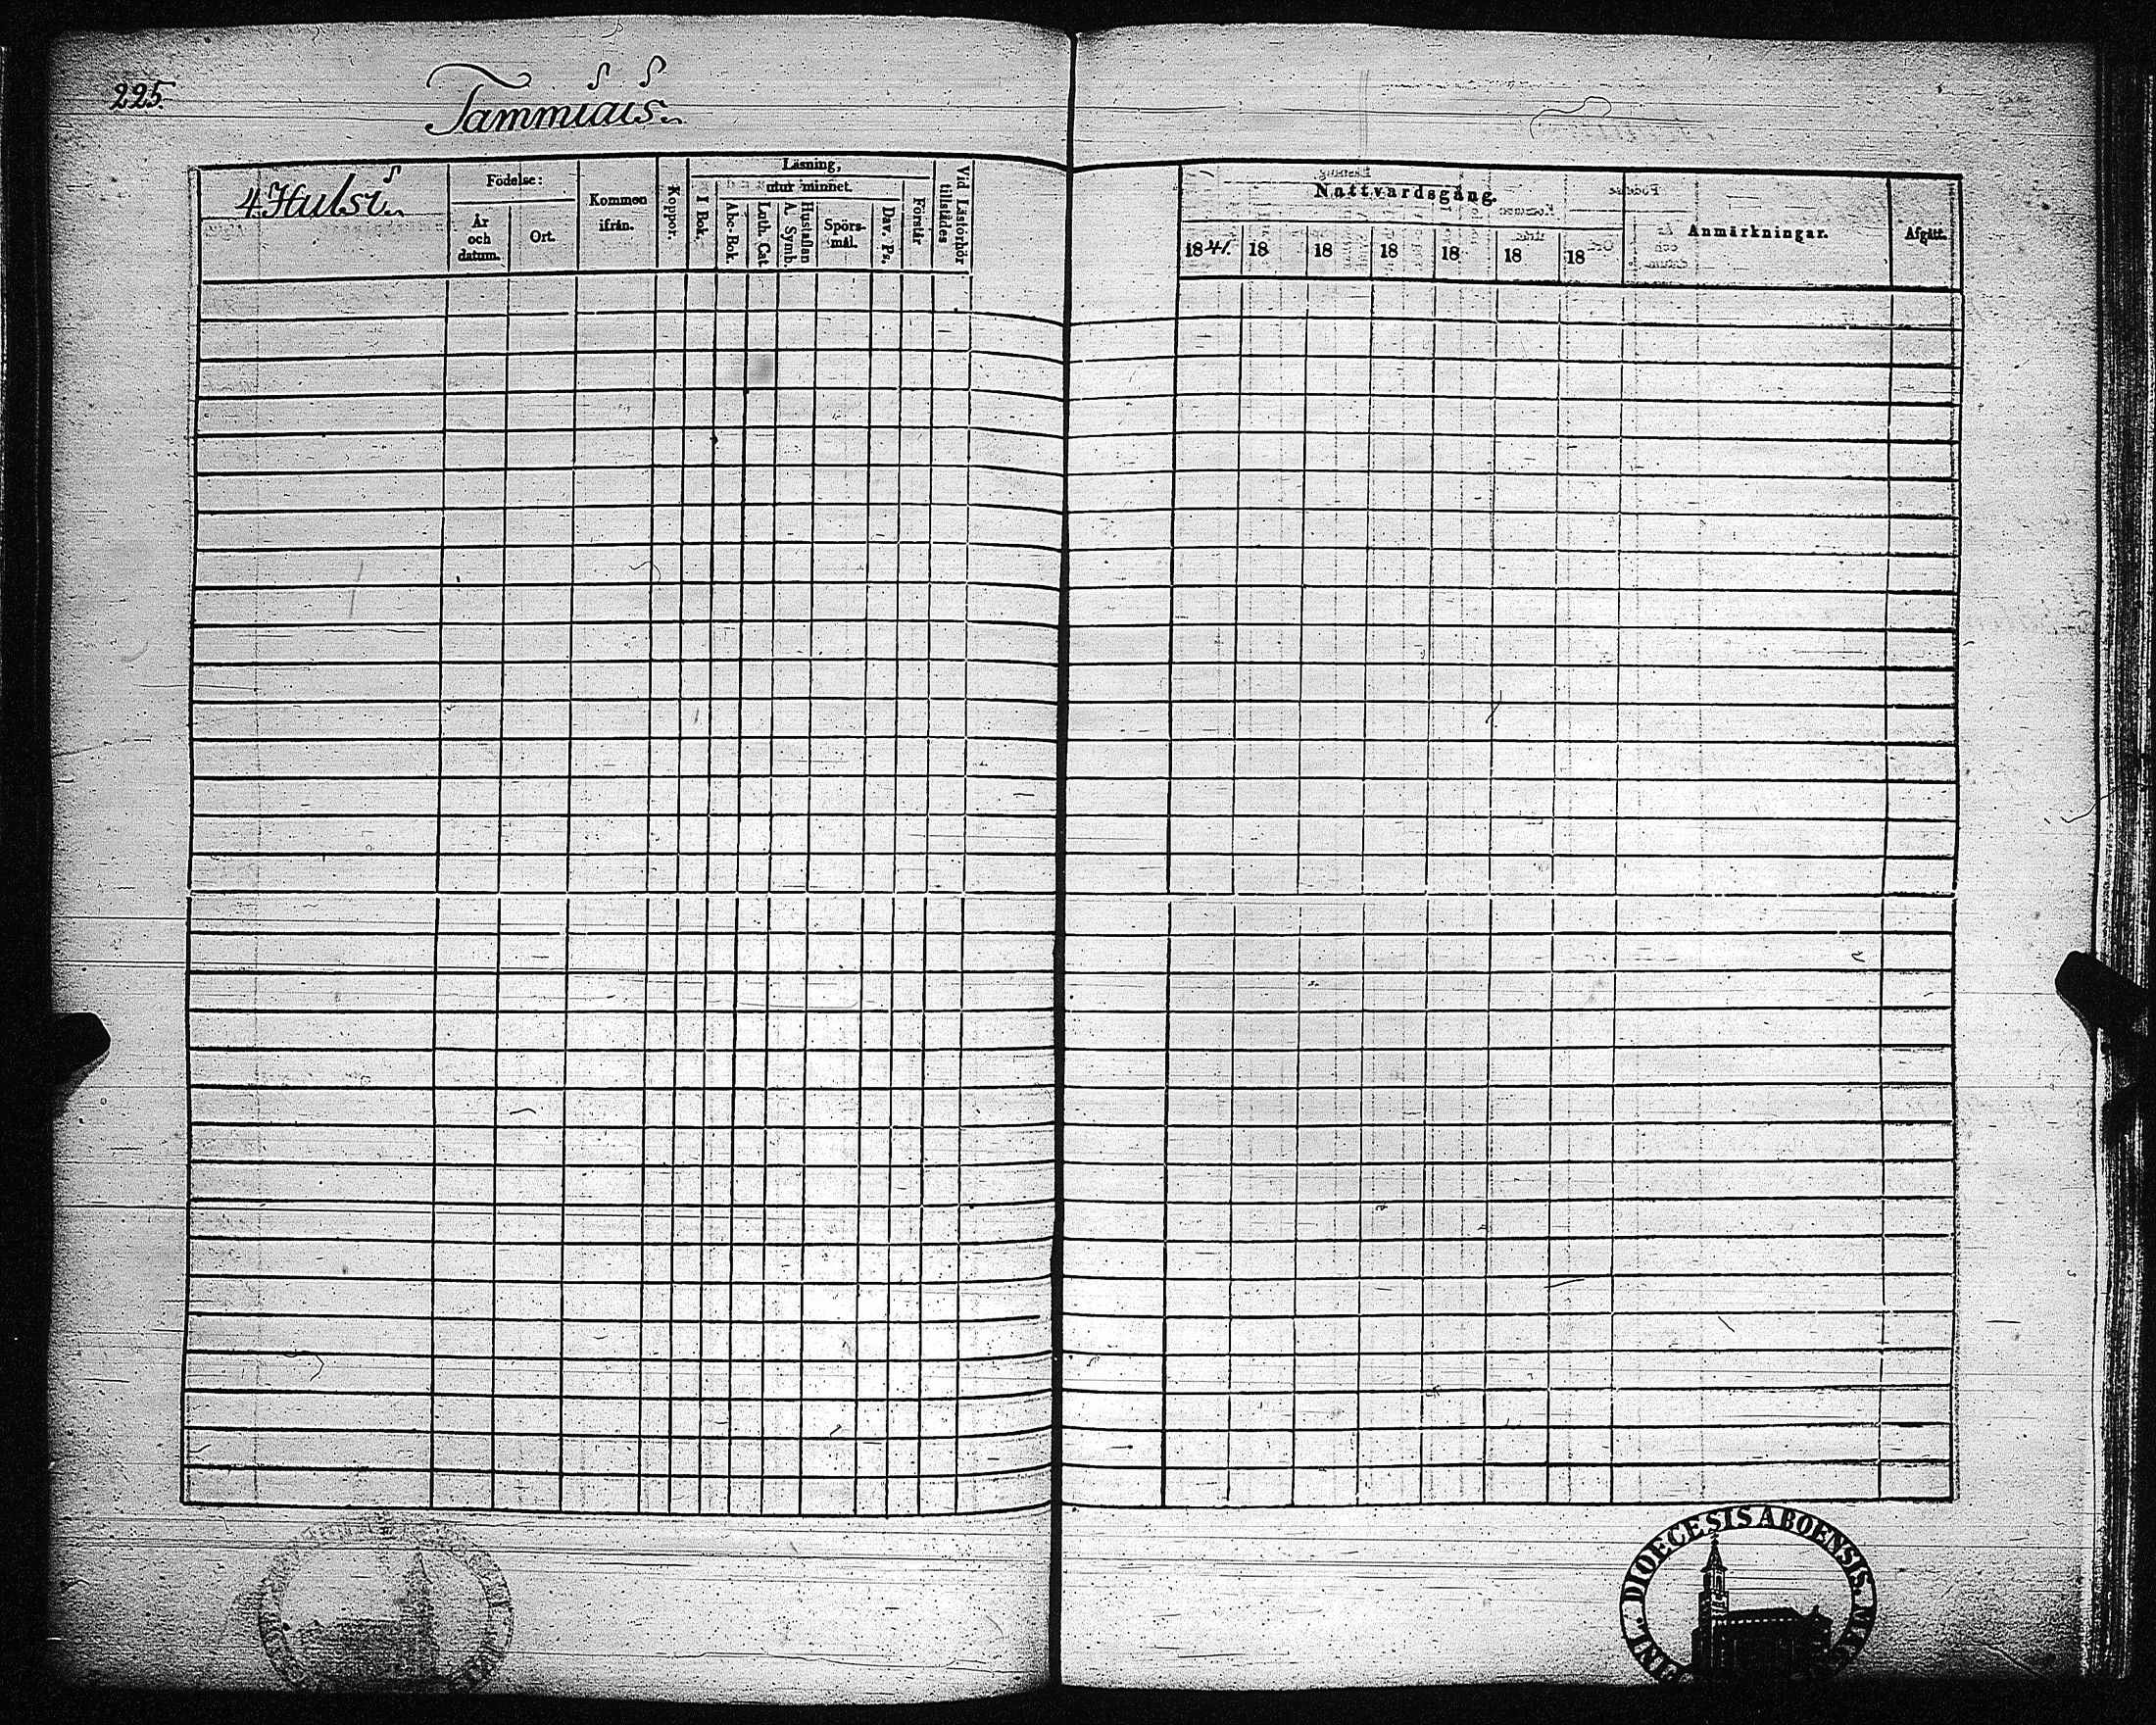 225.
Tammiais.
4 Hulsi.
Födelse:
År
och
datum.
Ort.
Kommen
ifrån.
Koppor.
Läsning,
utur minnet.
I Bok.
Abc-Bok.
Luth. Cat.
A. Symb.
Hustaflan
Spörs-
mål.
Dav. Ps.
Förstår
Vid Läsförhör
tillstädes
Nattvardsgång.
1841. 18 18 18 18 18 18
Anmärkningar.
Afgått.
DIOECESIS ABOENSIS.